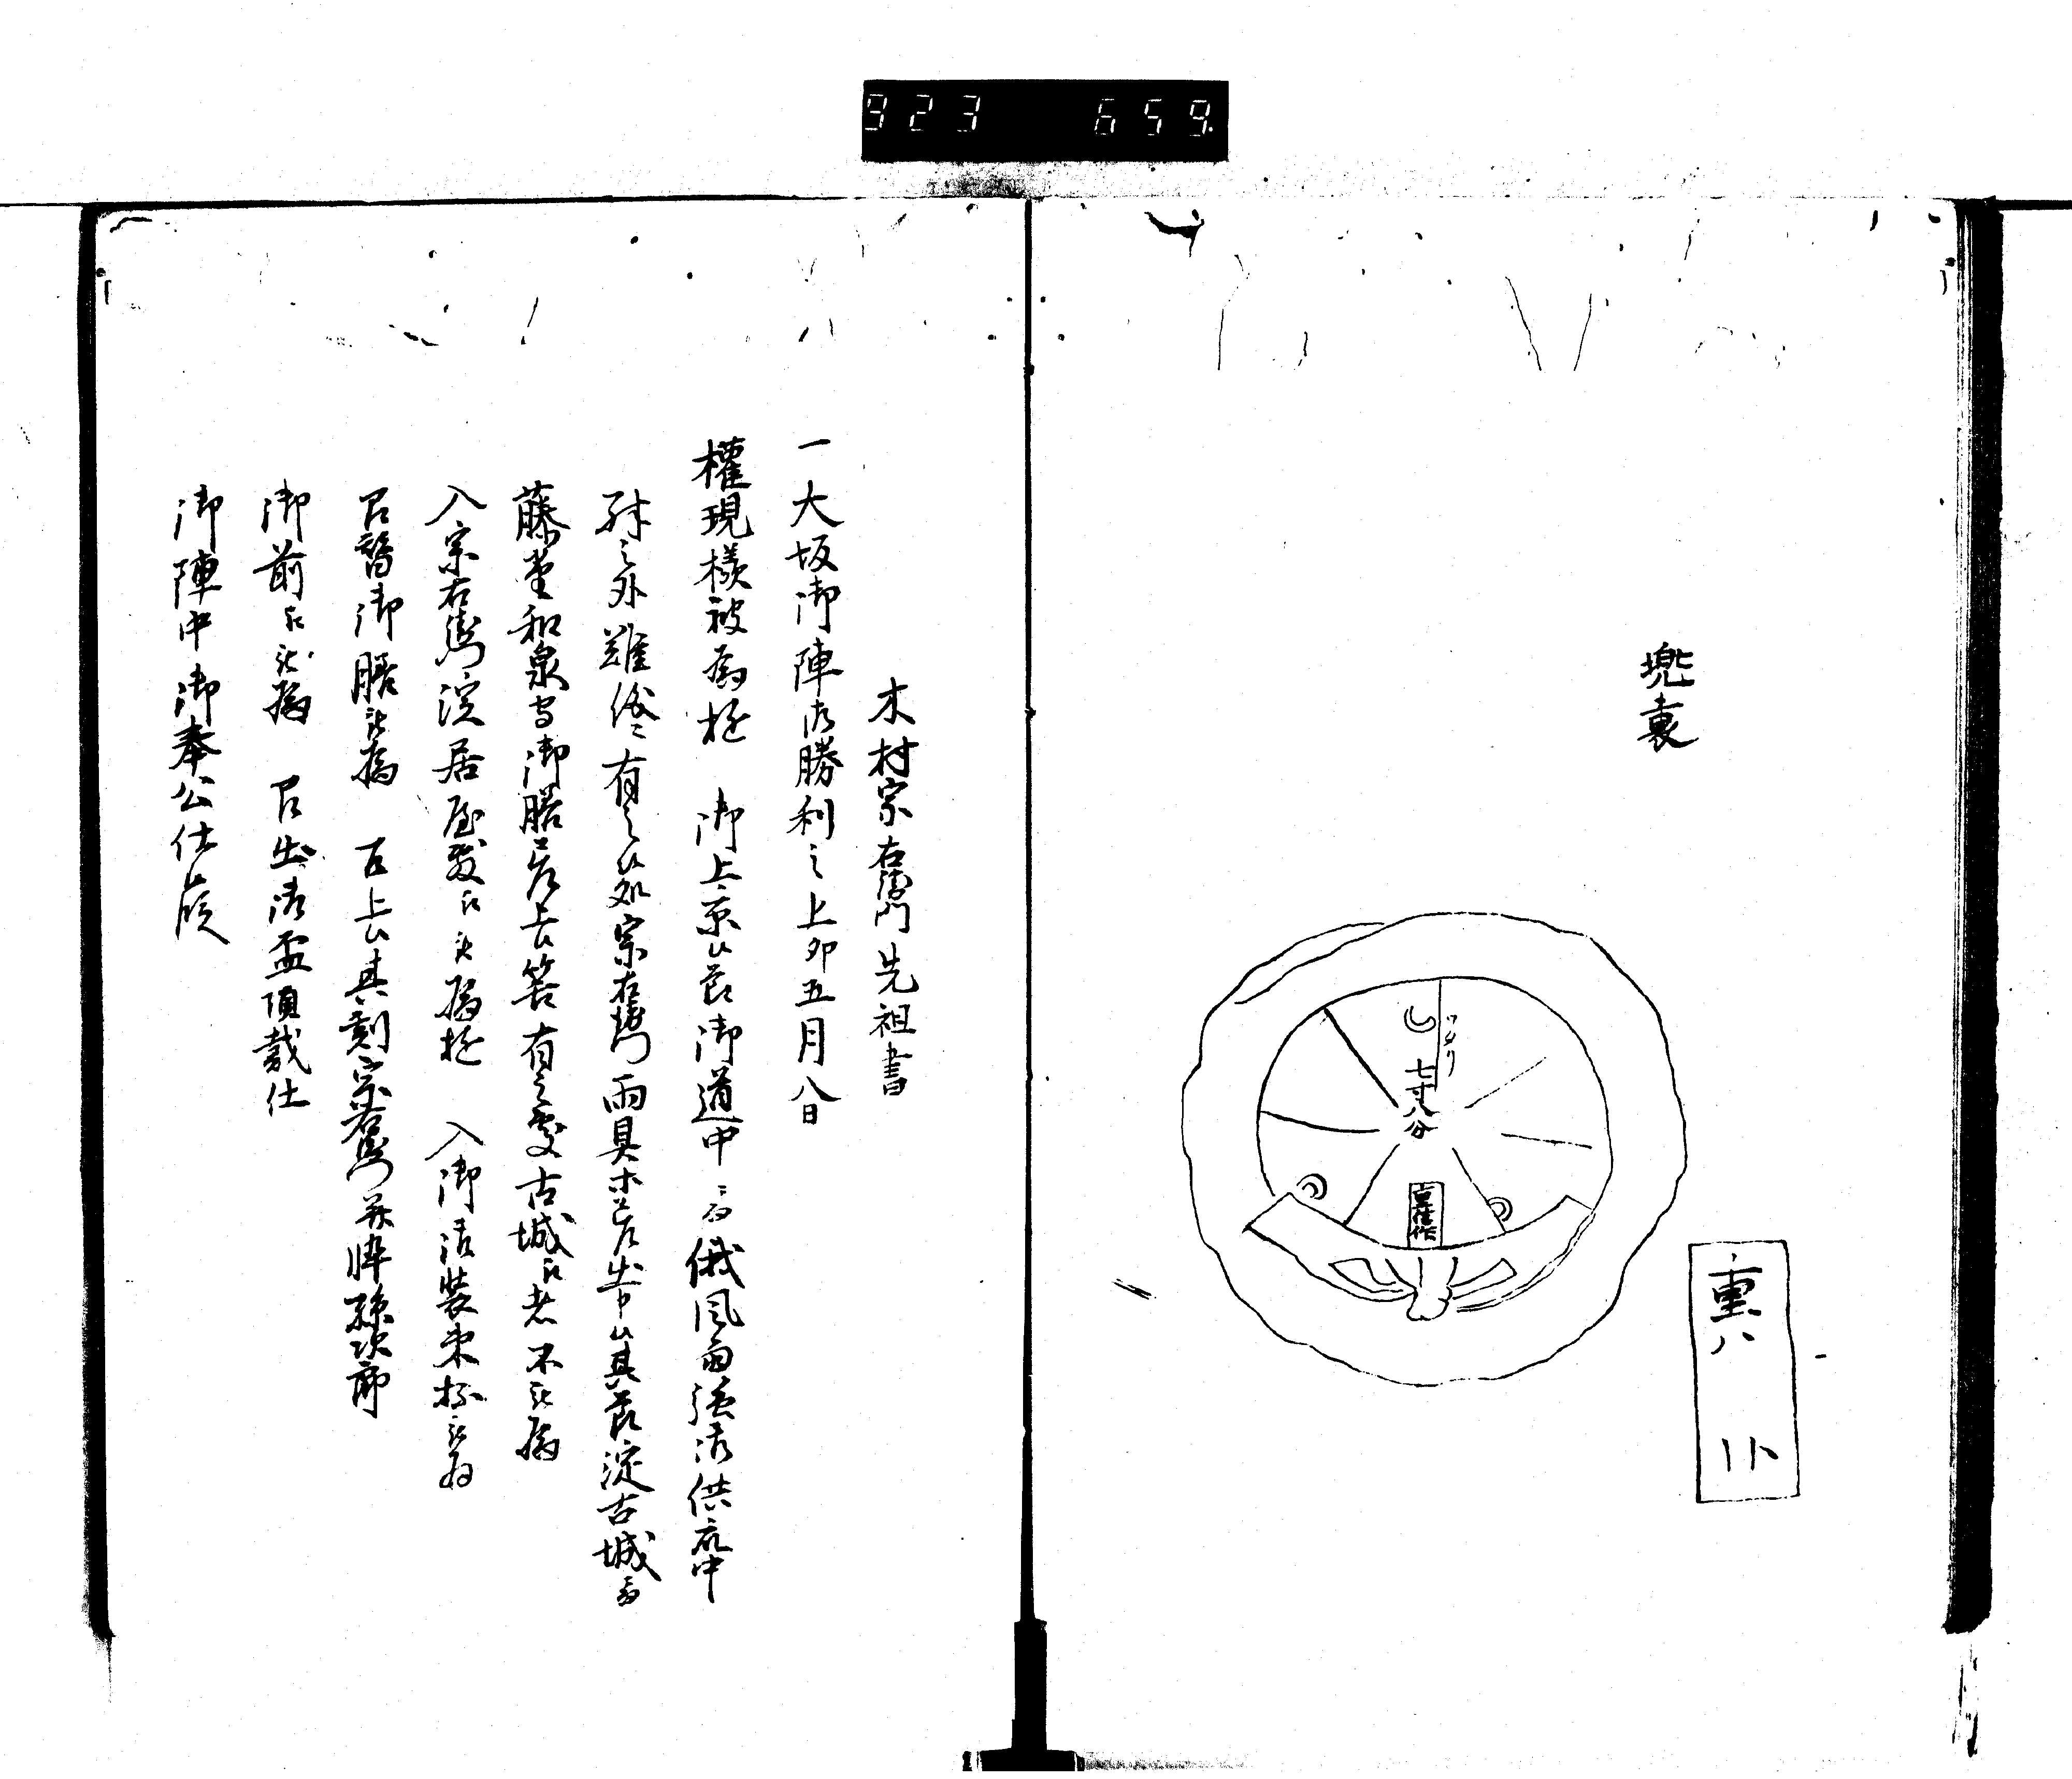 923 659
兜裏
つなり
七寸八分
重八
木村宗右衛門先祖書
一大坂御陣御勝利之上卯五月八日
權現様被為極 御上京候節御道中ニ而俄風雨強御供廻中
殊之外難儀ニ有之候処宗右衛門雨具等差出申候其節淀古城ニ而
藤堂和泉守御膳差上候筈有之處古城江者不被為
入宗右衛門淀居屋敷江被為極 入御御装束抔被為
召替御膳被為 召上候其刻宗右衛門并悴孫次郎
御前江被為 召出御盃頂戴仕
御陣中御奉公仕候段